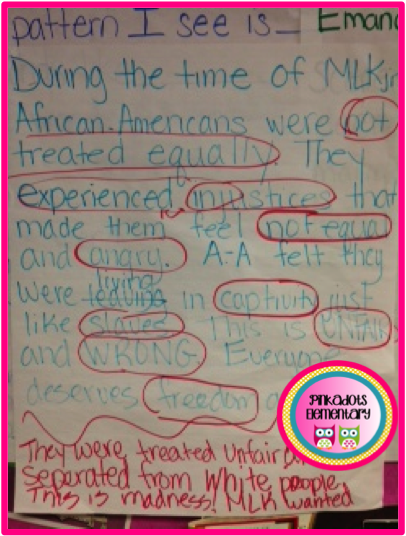 pattern I see is_ Eman
During the time of MLKjr
African-Americans were not
treated equally They
experienced injustices that
made them feel not equal
and angry. A-A felt they
living
were leaving in captivity just
like slaves This is UNFAIR
and WRONG Everyone
deserves freedom
PinkaDots
Elementary
They were treated unfair
separated from white people
This is madness! MLK wanted